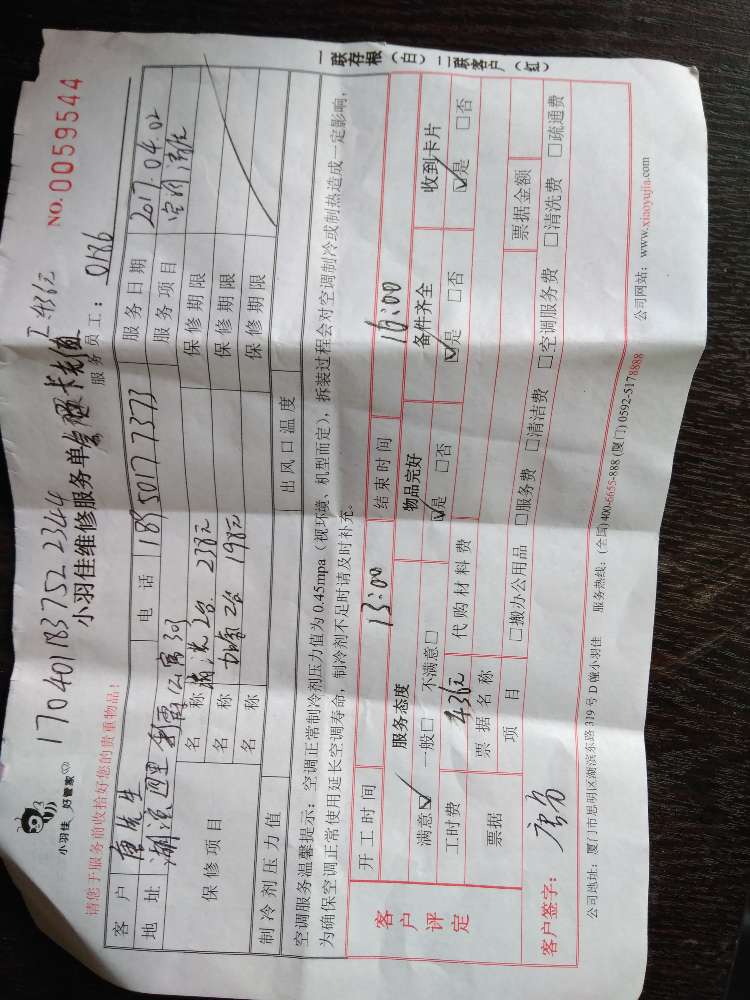 一联存根（白）二联客户（红）
小羽佳 好管家
17040183752 2344
NO.0059544
小羽佳维修服务单 卡充值
服务员工：0186
请您于服务前收拾好您的贵重物品！
客户 唐先生 电话 18950177373 服务日期 2017.04.02
地址 湖滨四里 服务项目 空调清洗
保修项目 名称 清洗2台 238元 保修期限
名称 2台 198元 保修期限
名称 保修期限
制冷剂压力值 出风口温度
空调服务温馨提示：空调正常制冷剂压力值为0.45mpa（视环境、机型而定），拆装过程会对空调制冷或制热造成一定影响，
为确保空调正常使用延长空调寿命，制冷剂不足时请及时补充。
客户评定
开工时间 13:00 结束时间 16:00
服务态度 物品完好 备件齐全 收到卡片
满意☑ 一般□ 不满意□ ☑是 □否 ☑是 □否 ☑是 □否
工时费 436元 代购材料费
票据 票据名称 票据金额
项目 □搬办公用品 □服务费 □清洁费 □空调服务费 □清洗费 □疏通费
客户签字：
公司地址：厦门市思明区湖滨东路319号D幢小羽佳 服务热线：(全国)400-6655-888 (厦门)0592-5178888 公司网站：www.xiaoyujia.com